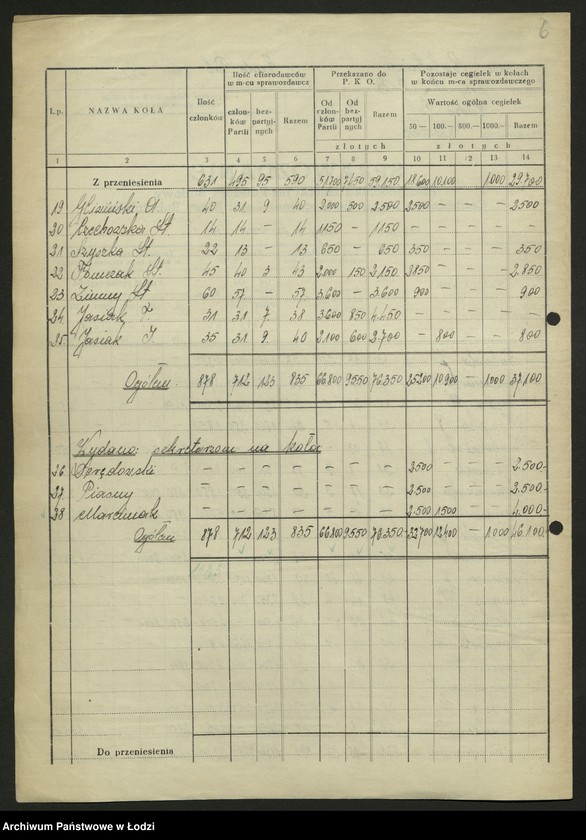 6
L.p. NAZWA KOŁA Ilość członków Ilość ofiarodawców w m-cu sprawozdawcz Przekazano do P. K. O. Pozostaje cegiełek w kołach w końcu m-ca sprawozdawczego
członków Partii bezpartyjnych Razem Od członków Partii Od bezpartyjnych Razem Wartość ogólna cegiełek
50— 100— 500— 1000— Razem
złotych złotych
1 2 3 4 5 6 7 8 9 10 11 12 13 14
Z przeniesienia 631 495 95 590 51700 7450 59.150 18600 10.100 1000 29.700
19 A. 40 31 9 40 2000 500 2.500 2500 — — — 2.500
20 St. 14 14 — 14 1150 — 1150 — — — — —
21 Szyszka St. 22 13 — 13 650 — 650 350 — — — 350
22 Tomczak St. 45 40 3 43 2.000 150 2.150 2850 — — — 2.850
23 Zimny St. 60 57 — 57 3.600 — 3.600 900 — — — 900
24. Jasiak F. 31 31 7 38 3600 850 4.450 — — — — —
25. Jasiak J. 35 31 9. 40 2.100 600 2.700 — 800 — — 800
Ogółem 878 712 123 835 66.800 9550 76.350 25200 10.900 — 1000 37.100
Wydano: sekretarzom na koła
26 — — — — — — — 2500 2.500-
27. Piasny — — — — — — — 2.500 2.500-
28 Marciniak — — — — — — — 2.500 1500 4.000-
Ogółem 878 712 123 835 66800 9.550 76.350- 32700 12400 — 1000 46.100-
Do przeniesienia
Archiwum Państwowe w Łodzi